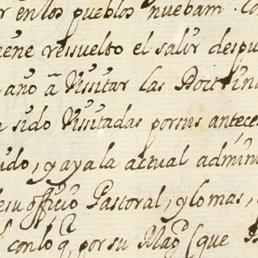 r en los pueblos nuebam. Co
iene ressuelto el salir despu
año a Vissitar las Doctrin
sido Vissitadas por sus anteces
ido, y aya la actual admin
esu officio Pastoral, y lo mas,
con lo q por su Mag (que